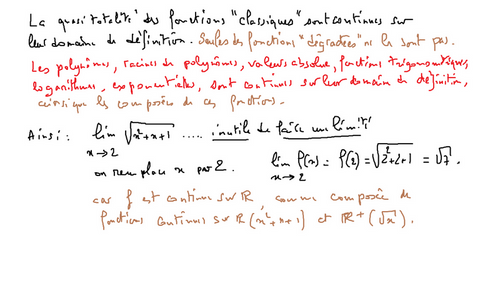 La quasi totalité des fonctions "classiques" sont continues sur
leur domaine de définition. Seules des fonctions "dégradées" ne le sont pas.
Les polynômes, racines de polynômes, valeurs absolue, fonctions trigonométriques,
logarithmes, exponentielles, sont continus sur leur domaine de définition,
ainsi que les composées de ces fonctions.
Ainsi : lim √x²+x+1 ..... inutile de faire un limit
x→2
on remplace x par 2. lim f(x) = f(2) = √2²+2+1 = √7.
x→2
car f est continue sur ℝ, comme composée de
fonctions continues sur ℝ (x²+x+1) et ℝ+ (√x).